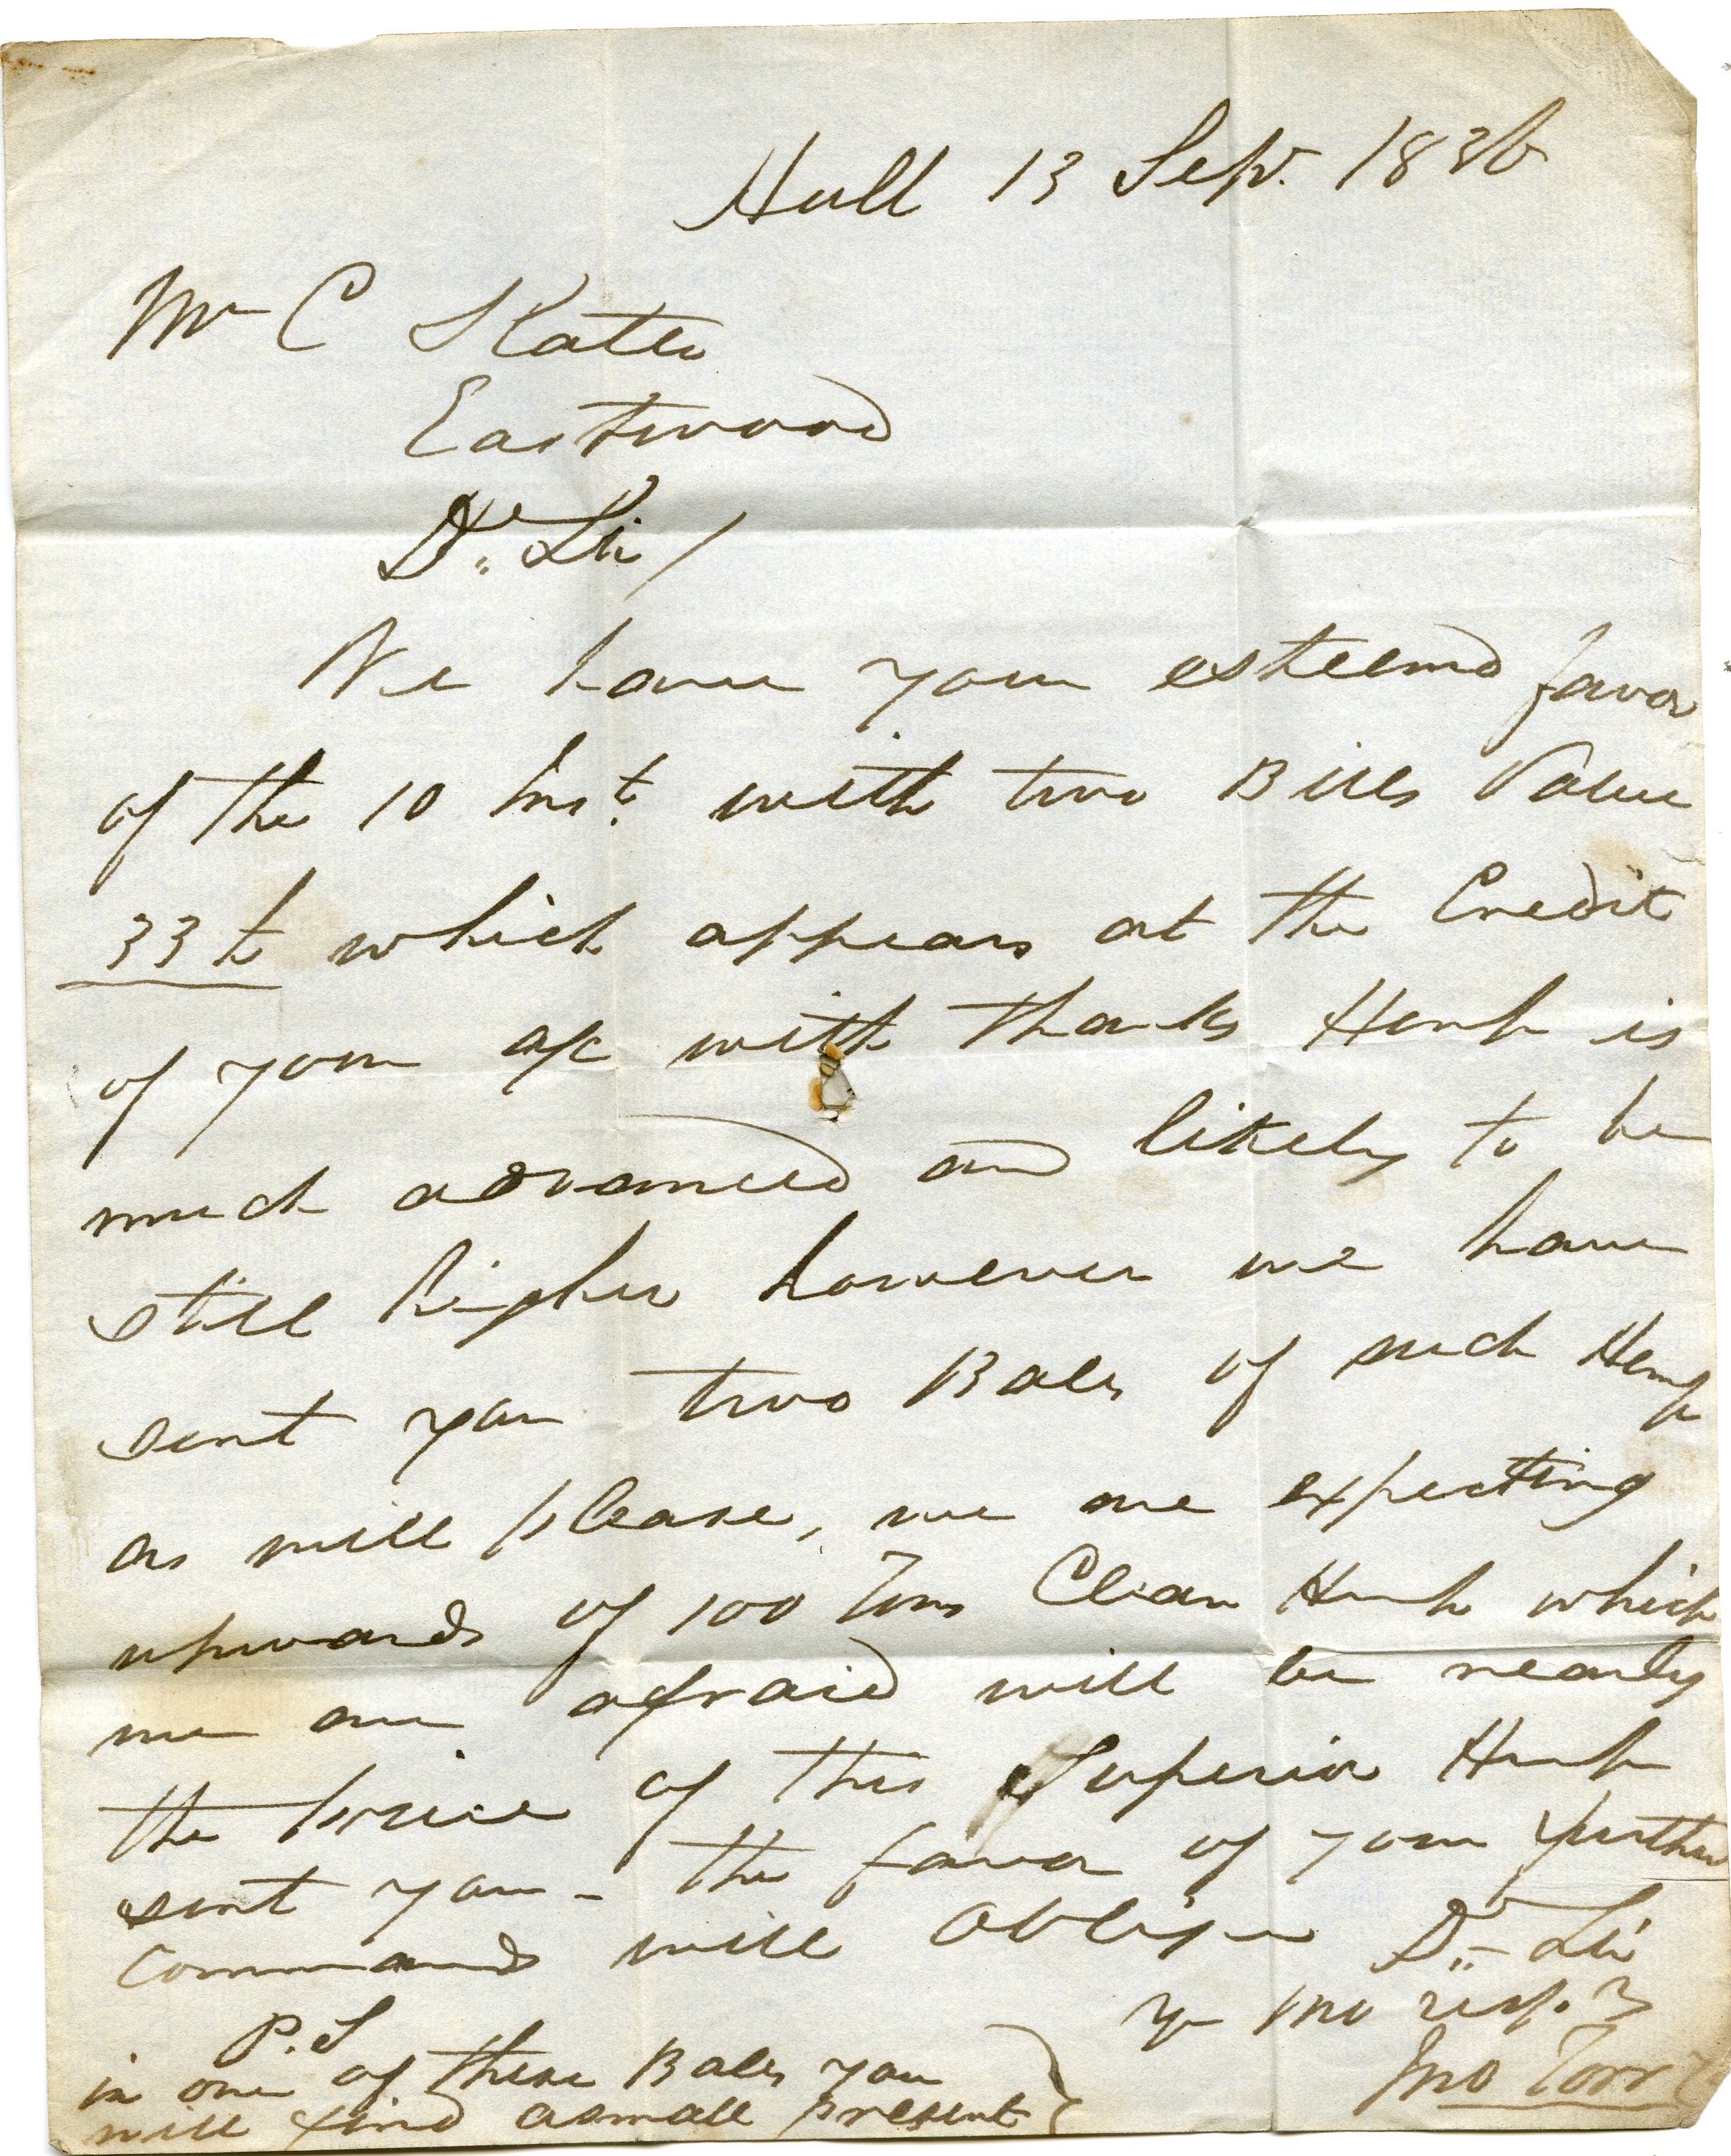 Hull 13 Sepr. 1836
Mr C Skater
Eastwood
Dr. Sir/
We have your esteemd favor
of the 10 Inst. with two Bills Value
33 £ which appears at the Credit
of your a/c with thanks Hemp is
much advanced and likely to be
still higher however we have
sent you two Bales of such Hemp
as will please, we are expecting
upwards of 100 Tons Clean Hemp which
we are afraid will be nearly
the price of this Superior Hemp
sent you - the favor of your further
commands will oblige Dr. Sir
yr mo resp.
Jno Torr
P.S
in one of these Bales you
will find a small present